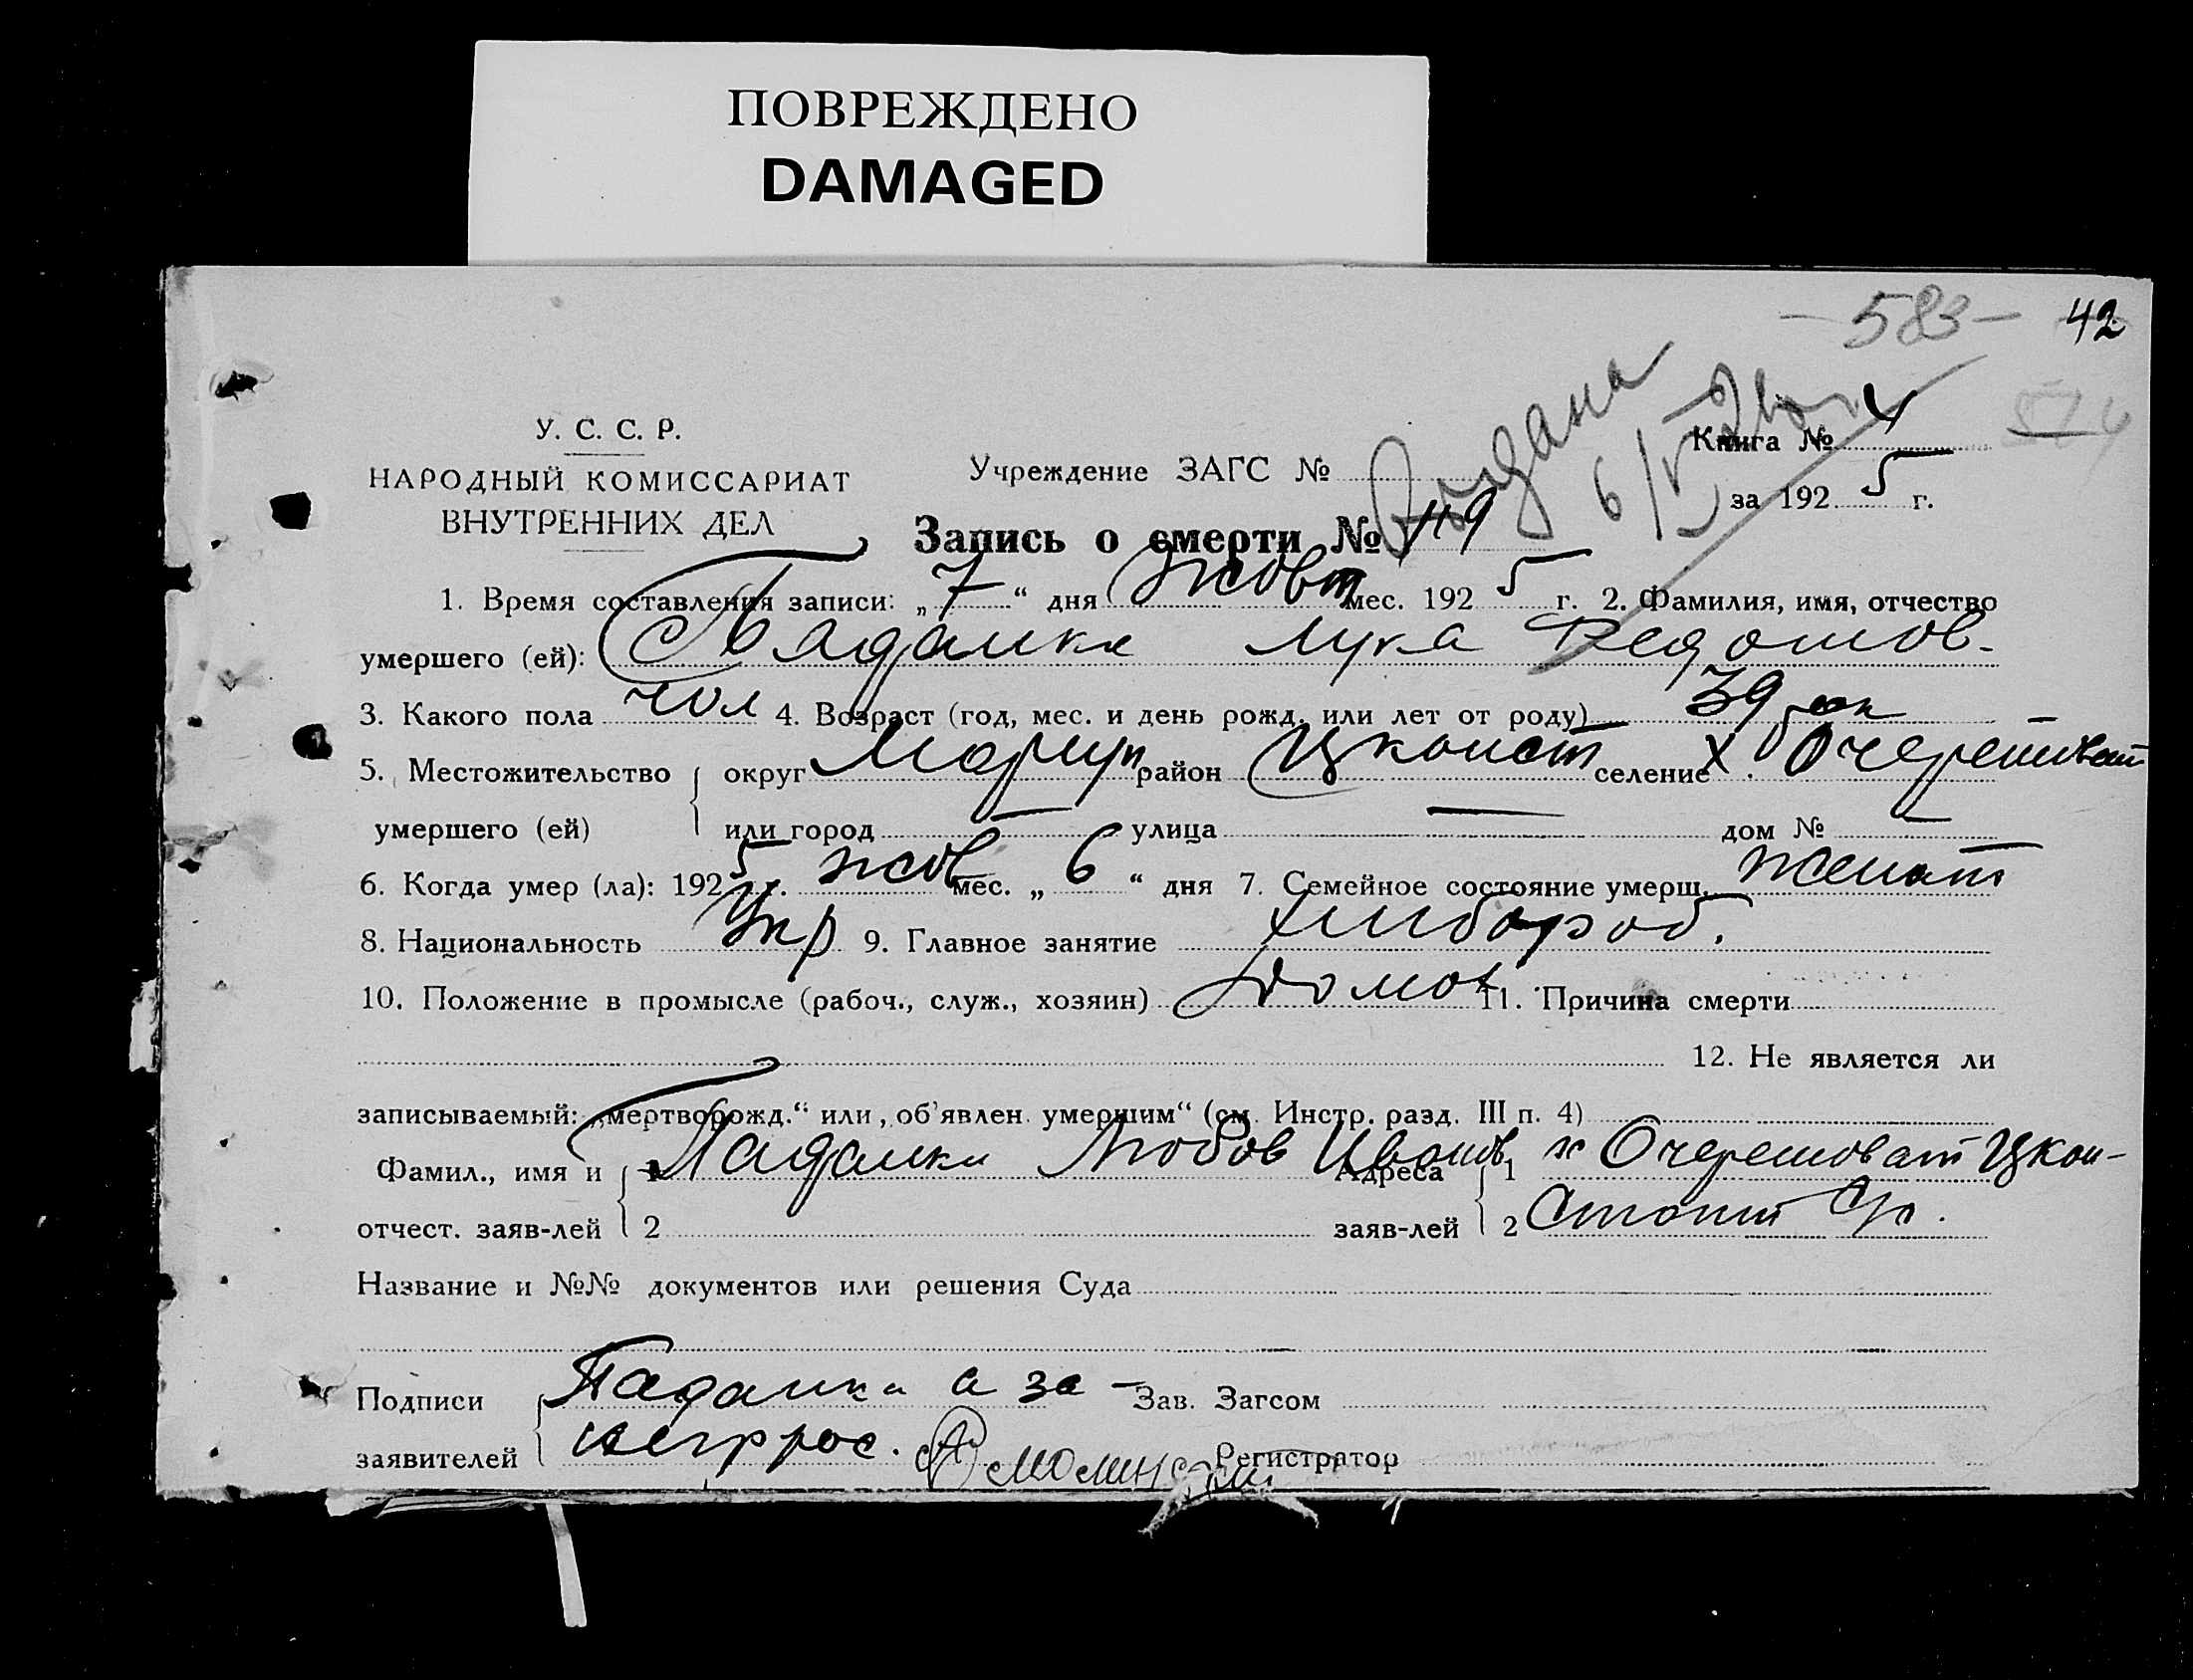 ПОВРЕЖДЕНО
DAMAGED
- 583 - 42
У. С. С. Р.
НАРОДНЫЙ КОМИССАРИАТ
ВНУТРЕННИХ ДЕЛ
Учреждение ЗАГС №
Книга № 4
за 1925 г.
Запись о смерти № 119
1. Время составления записи: „7“ дня жовт мес. 1925 г. 2. Фамилия, имя, отчество
умершего (ей): Падалка Лука Федотов-
3. Какого пола чол 4. Возраст (год, мес. и день рожд. или лет от роду) 39
5. Местожительство округ Мариуп район Цконст селение х. Очеретоват
умершего (ей) или город — улица — дом № —
6. Когда умер (ла): 1925 г. жов мес. „6“ дня 7. Семейное состояние умерш. женат
8. Национальность Укр 9. Главное занятие хлибороб.
10. Положение в промысле (рабоч., служ., хозяин) 11. Причина смерти
12. Не является ли
записываемый: „мертворожд.“ или „об'явлен умершим“ (см. Инстр. разд. III п. 4)
Фамил., имя и 1 Падалки Любов Иванов Адреса 1 х Очеретоват Цкон-
отчест. заяв-лей 2 заяв-лей 2
Название и №№ документов или решения Суда
Подписи Падалка а за - Зав. Загсом
заявителей Регистратор